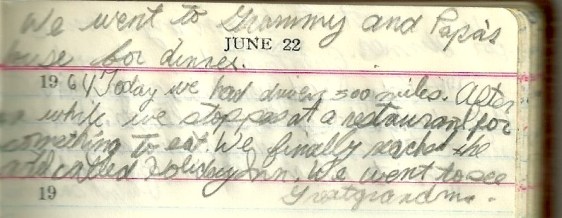 We went to Grammy and Papa's
house for dinner.
JUNE 22
1964 Today we had driven 300 miles. After
a while we stopped at a restaurant for
something to eat. We finally reached the
called Holiday Inn. We went to see
19
Greatgrandma.